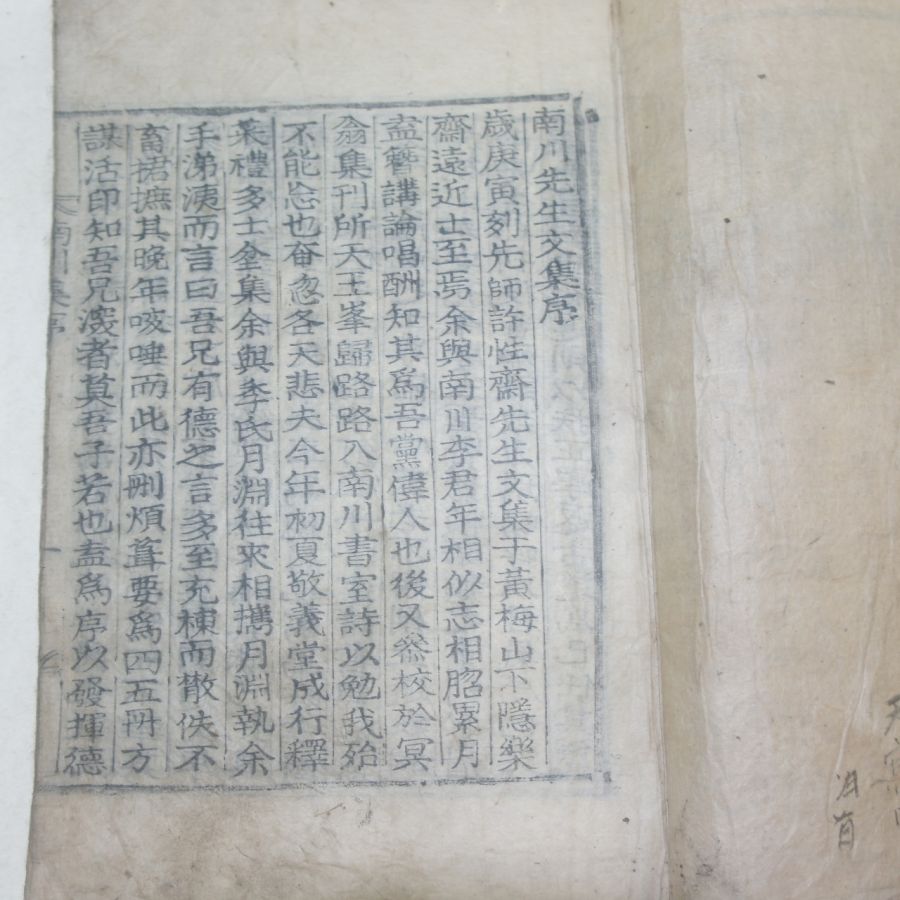 南川先生文集序
歲庚寅刻先師許性齋先生文集于黃梅山下隱樂
齋遠近士至焉余與南川李君年相似志相脗累月
盍簪講論唱酬知其爲吾黨偉人也後又叅校於冥
翁集刊所天王峯歸路路入南川書室詩以勉我殆
不能忘也奄忽各天悲夫今年初夏敬義堂成行釋
菜禮多士坌集余與李氏月淵往來相携月淵執余
手涕洟而言曰吾兄有德之言多至充棟而散佚不
畜捃摭其晚年咳唾而此亦刪煩葺要爲四五冊方
謀活印知吾兄深者莫吾子若也盍爲序以發揮德
南川集序